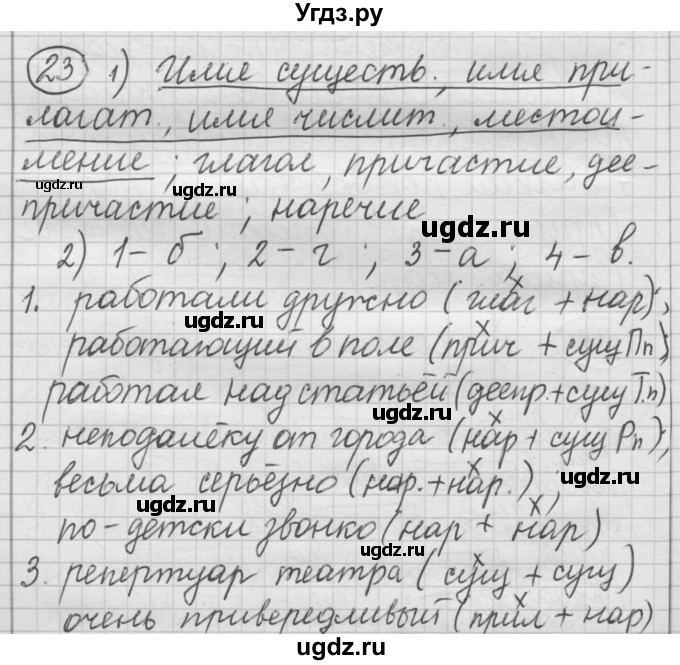 Угдз.ру
23 1) Имя существ., имя при-
лагат., имя числит., местои-
мение; глагол, причастие, дее-
причастие; наречие
2) 1-б; 2-г; 3-а; 4-в.
1. работали дружно (глаг + нар),
работающий в поле (прич + сущ Пп),
работал над статьёй (деепр.+сущ Т.п)
2. неподалёку от города (нар + сущ Рп),
весьма серьёзно (нар.+нар.),
по-детски звонко (нар + нар)
3. репертуар театра (сущ + сущ)
очень привередливый (прил + нар)
ugdz.ru
ugdz.ru
ugdz.ru
ugdz.ru
ugdz.ru
ugdz.ru
ugdz.ru
ugdz.ru
ugdz.ru
ugdz.ru
ugdz.ru
ugdz.ru